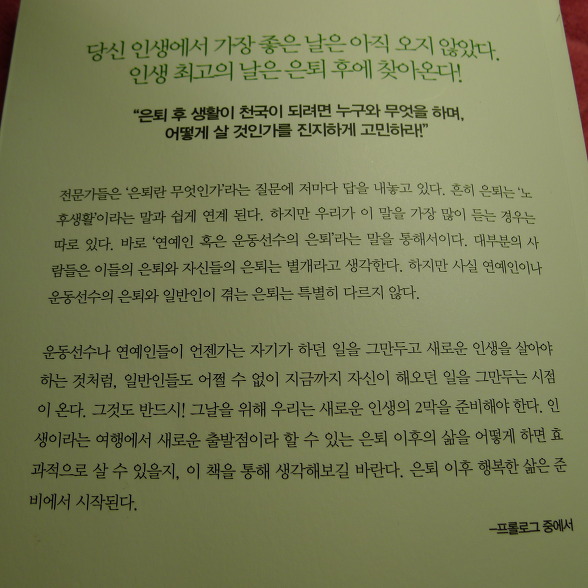 당신 인생에서 가장 좋은 날은 아직 오지 않았다.
인생 최고의 날은 은퇴 후에 찾아온다!
“은퇴 후 생활이 천국이 되려면 누구와 무엇을 하며,
어떻게 살 것인가를 진지하게 고민하라!”
전문가들은 ‘은퇴란 무엇인가’라는 질문에 저마다 답을 내놓고 있다. 흔히 은퇴는 ‘노
후생활’이라는 말과 쉽게 연계 된다. 하지만 우리가 이 말을 가장 많이 듣는 경우는
따로 있다. 바로 ‘연예인 혹은 운동선수의 은퇴’라는 말을 통해서이다. 대부분의 사
람들은 이들의 은퇴와 자신들의 은퇴는 별개라고 생각한다. 하지만 사실 연예인이나
운동선수의 은퇴와 일반인이 겪는 은퇴는 특별히 다르지 않다.
운동선수나 연예인들이 언젠가는 자기가 하던 일을 그만두고 새로운 인생을 살아야
하는 것처럼, 일반인들도 어쩔 수 없이 지금까지 자신이 해오던 일을 그만두는 시점
이 온다. 그것도 반드시! 그날을 위해 우리는 새로운 인생의 2막을 준비해야 한다. 인
생이라는 여행에서 새로운 출발점이라 할 수 있는 은퇴 이후의 삶을 어떻게 하면 효
과적으로 살 수 있을지, 이 책을 통해 생각해보길 바란다. 은퇴 이후 행복한 삶은 준
비에서 시작된다.
–프롤로그 중에서